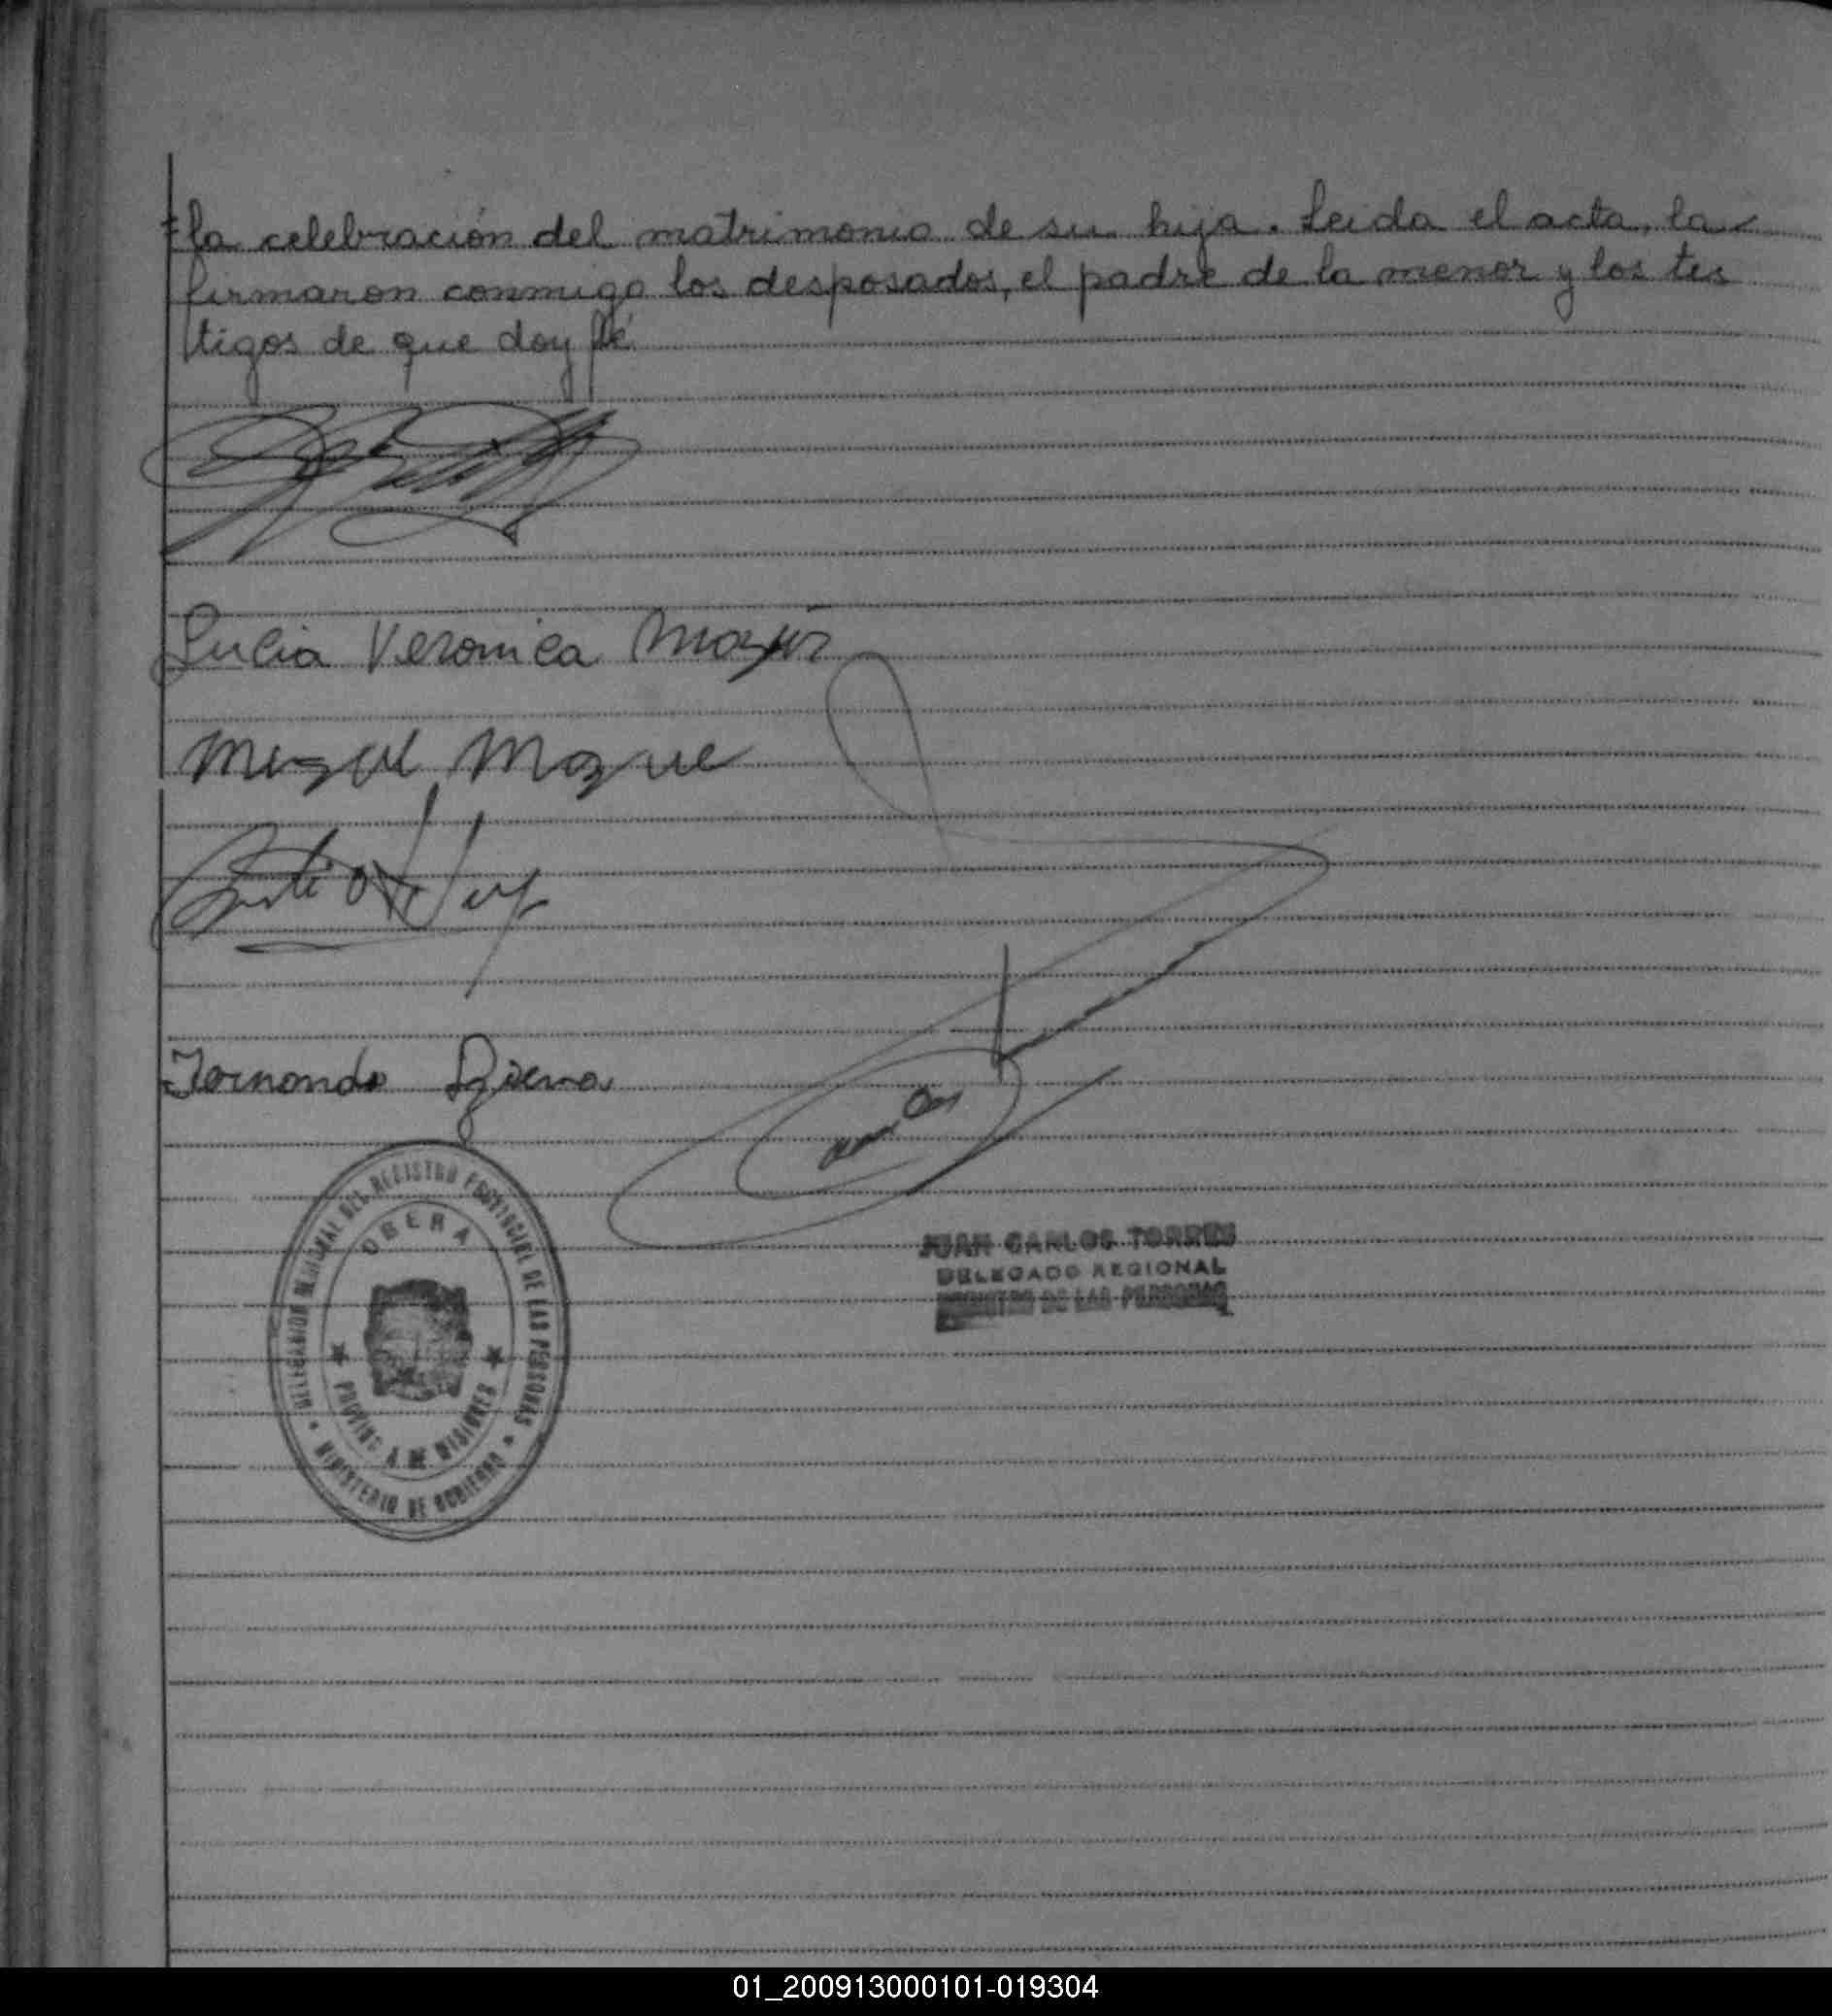 la celebración del matrimonio de su hija. Leida el acta, la
firmaron conmigo los desposados, el padre de la menor y los tes
tigos de que doy fé
Lucia Veronica
Miguel
Fernando
DELEGACION REGIONAL DEL REGISTRO PROVINCIAL DE LAS PERSONAS
OBERA
PROVINCIA DE MISIONES
MINISTERIO DE GOBIERNO
JUAN CARLOS TORRES
DELEGADO REGIONAL
REGISTRO DE LAS PERSONAS
01_200913000101-019304